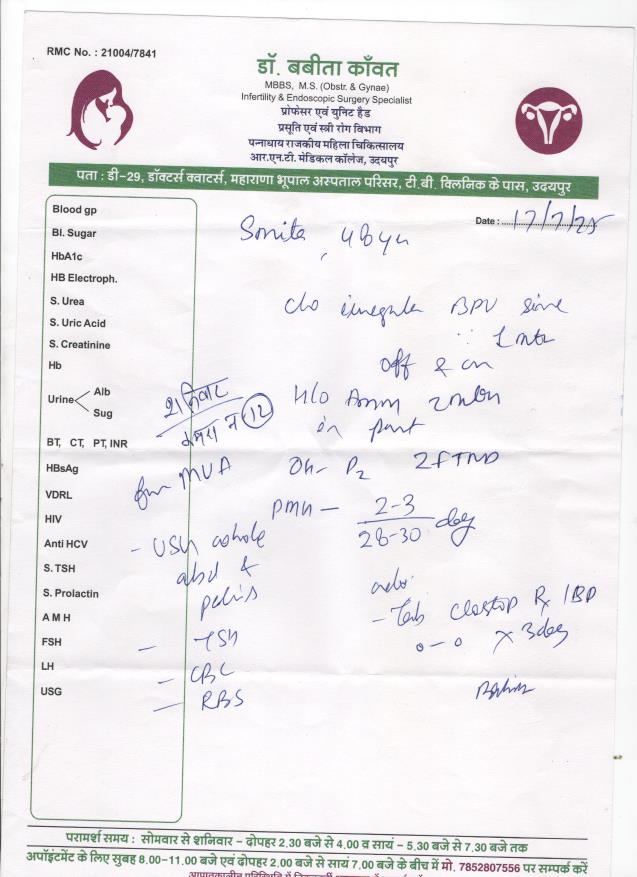 RMC No. : 21004/7841
डॉ. बबीता काँवत
MBBS, M.S. (Obstr. & Gynae)
Infertility & Endoscopic Surgery Specialist
प्रोफेसर एवं युनिट हैड
प्रसूति एवं स्त्री रोग विभाग
पन्नाधाय राजकीय महिला चिकित्सालय
आर.एन.टी. मेडिकल कॉलेज, उदयपुर
पता : डी-29, डॉक्टर्स क्वाटर्स, महाराणा भूपाल अस्पताल परिसर, टी.बी. क्लिनिक के पास, उदयपुर
Date : 17/7/25
Blood gp
Bl. Sugar
HbA1c
HB Electroph.
S. Urea
S. Uric Acid
S. Creatinine
Hb
Urine Alb
Sug
BT, CT, PT, INR
HBsAg
VDRL
HIV
Anti HCV
S. TSH
S. Prolactin
A M H
FSH
LH
USG
c/o irregular BPV since
off & on
H/o
in past
शनिवार
12
for MVA
OH- P2 2FTND
PMH - 2-3
28-30 day
- USG whole
abd &
pelvis
- TSH
- CBC
- RBS
adv.
- Tab
x 3day
परामर्श समय : सोमवार से शनिवार - दोपहर 2.30 बजे से 4.00 व सायं - 5.30 बजे से 7.30 बजे तक
अपॉइंटमेंट के लिए सुबह 8.00-11.00 बजे एवं दोपहर 2.00 बजे से सायं 7.00 बजे के बीच में मो. 7852807556 पर सम्पर्क करें